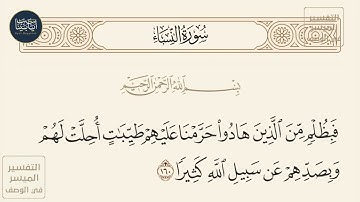 سُورَةُ النِّسَاءِ
بِسْمِ اللَّهِ الرَّحْمَٰنِ الرَّحِيمِ
فَبِظُلْمٍ مِّنَ الَّذِينَ هَادُوا حَرَّمْنَا عَلَيْهِمْ طَيِّبَاتٍ أُحِلَّتْ لَهُمْ
وَبِصَدِّهِمْ عَن سَبِيلِ اللَّهِ كَثِيرًا ١٦٠
التفسير
الميسر
في الوصف
التفسير
الميسر
في الوصف